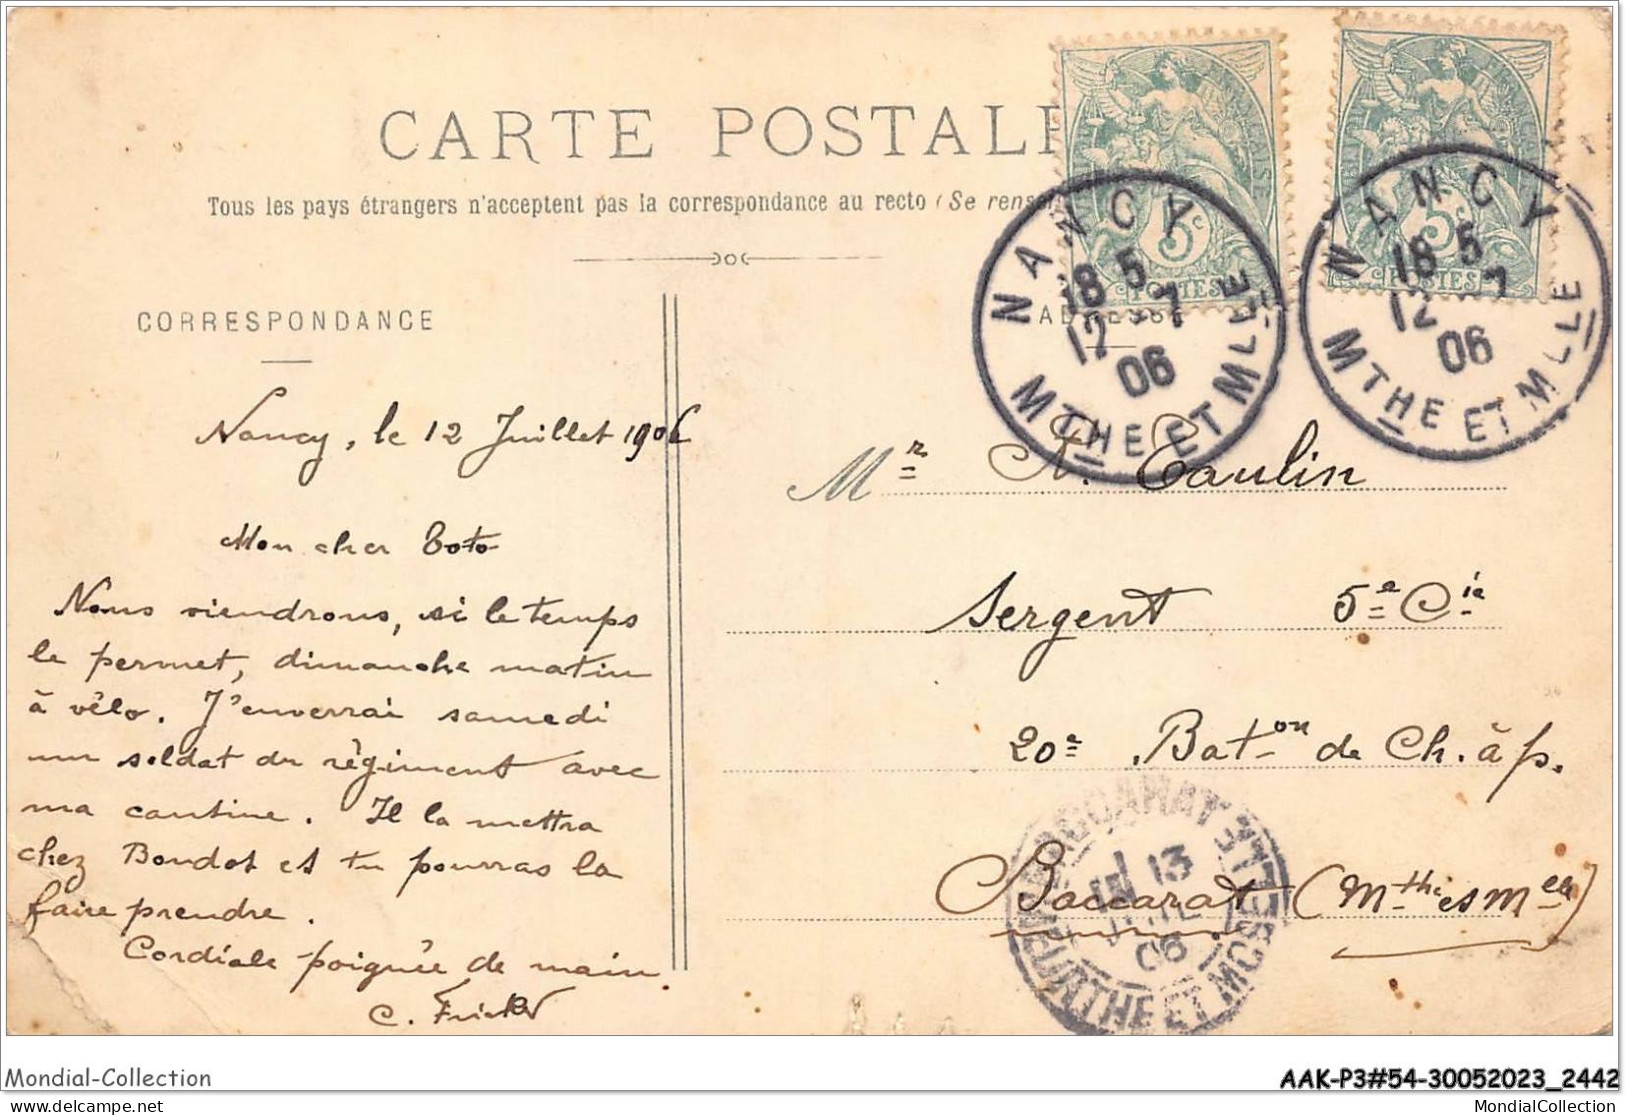 CARTE POSTALE
Tous les pays étrangers n'acceptent pas la correspondance au recto (Se rensei
CORRESPONDANCE
ADRESSE
NANCY
18 5
12 - 7
06
MTHE ET MLLE
NANCY
18 5
12 - 7
06
MTHE ET MLLE
5c
POSTES
5c
POSTES
Nancy, le 12 Juillet 1906
Mon cher Toto
Nous viendrons, si le temps
le permet, dimanche matin
à vélo. J'enverrai samedi
un soldat du régiment avec
ma cantine. Il la mettra
chez Boudot et tu pourras la
faire prendre.
Cordiale poignée de main.
C.
Mr A. Taulin
Sergent 5e Cie
20e Baton de Ch. à p.
Baccarat (Mthe et Melle)
BACCARAT
13
06
MTHE ET MOSELLE
Mondial-Collection
AAK-P3#54-30052023_2442
delcampe.net
MondialCollection